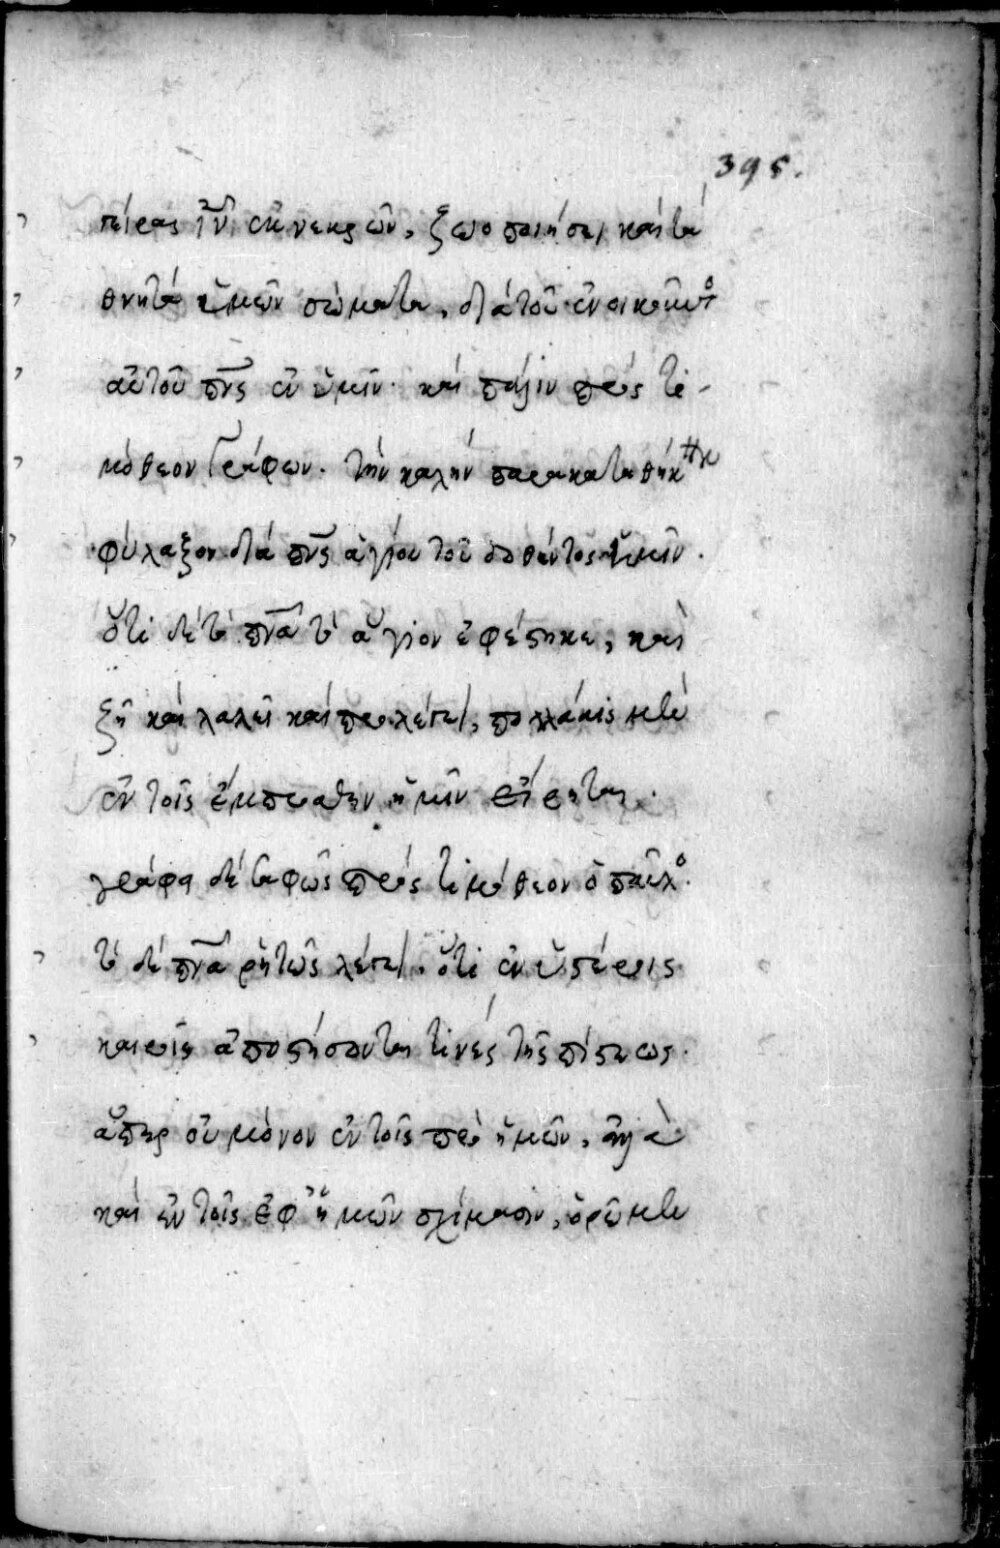 395.
γείρας ἰν̅ ἐκ νεκρῶν, ζωοποιήσει καὶ τὰ
θνητὰ ὑμῶν σώματα, διὰ τοῦ ἐνοικοῦντος
αὐτοῦ πν̅ς ἐν ὑμῖν· καὶ πάλιν πρὸς τι-
μόθεον γράφων. τὴν καλὴν παρακαταθήκην
φύλαξον διὰ πν̅ς ἁγίου τοῦ δοθέντος ἡμῖν.
ὅτι δὲ τὸ πν̅α τὸ ἅγιον ἐφέστηκε, καὶ
ζῆ καὶ λαλεῖ καὶ προλέγει, πολλάκις μὲν
ἐν τοῖς ἔμπροσθεν ἡμῖν εἴρηται.
γράφει δὲ σαφῶς πρὸς τιμόθεον ὁ παῦλος.
τὸ δὲ πν̅α ῥητῶς λέγει. ὅτι ἐν ὑστέροις
καιροῖς ἀποστήσονται τινὲς τῆς πίστεως.
ἅπερ οὐ μόνον ἐν τοῖς πρὸ ἡμῶν, ἀλλὰ
καὶ ἐν τοῖς ἐφ' ἡμῶν σχίσμασιν, ὁρῶμεν